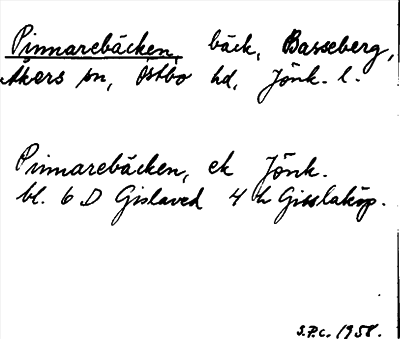 Pinnarebäcken, bäck, Basseberg,
Åkers sn, Östbo hd, Jönk. l.
Pinnarebäcken, ek Jönk.
bl. 6 D Gislaved 4 h Gisslaköp.
S.P.c. 1958.